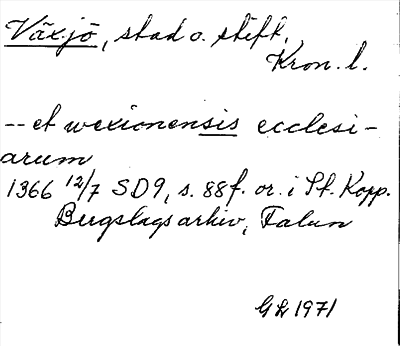 Växjö, stad o. stift,
Kron. l.
-- et wexionensis ecclesi-
arum
1366 12/7 SD9, s. 88f. or. i St. Kopp.
Bergslags arkiv, Falun
GL 1971